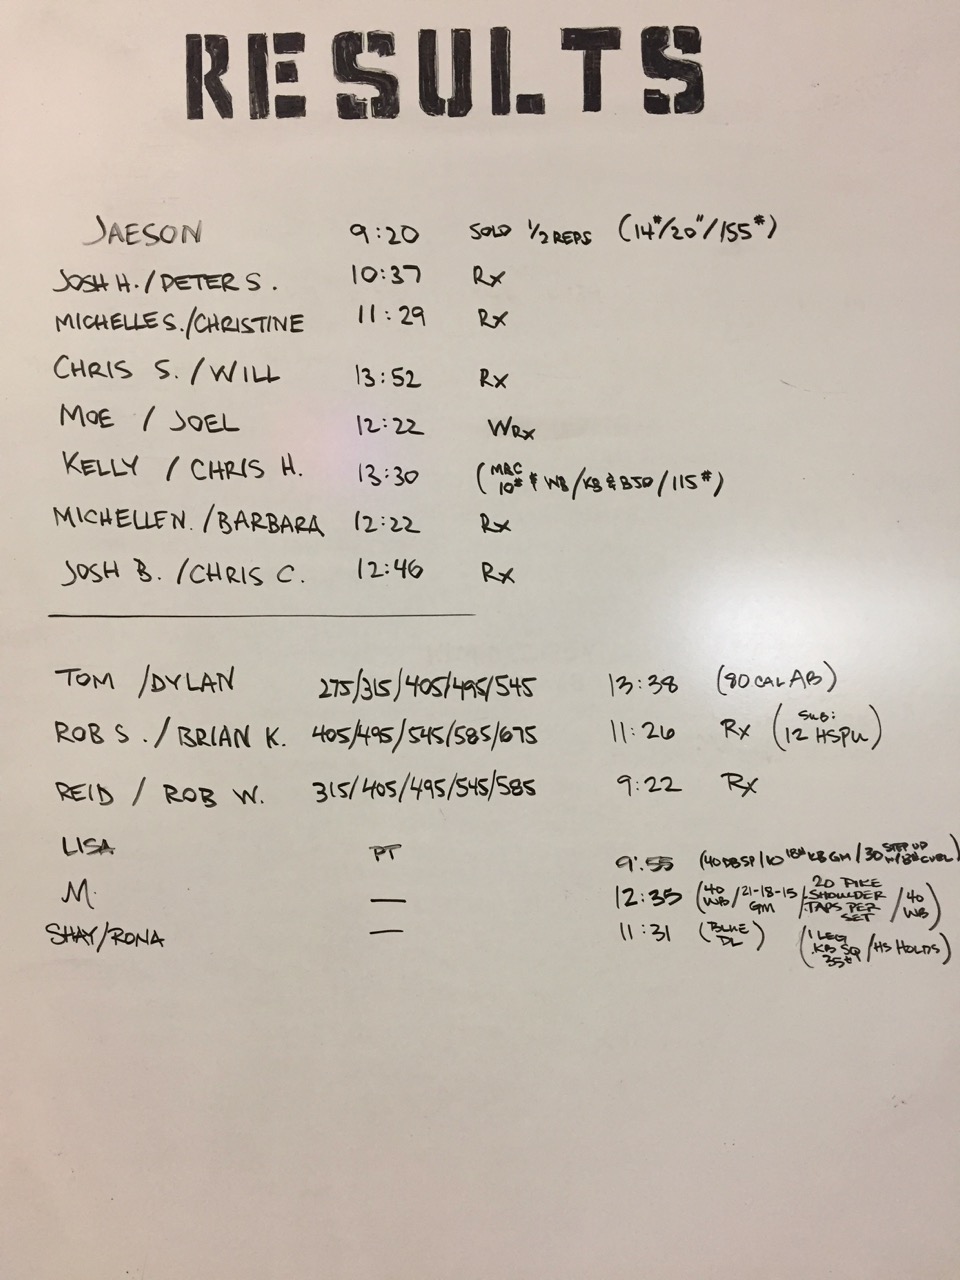 RESULTS
JAESON 9:20 SOLO 1/2 REPS (14#/20"/155#)
JOSH H./PETER S. 10:37 Rx
MICHELLE S./CHRISTINE 11:29 Rx
CHRIS S./WILL 13:52 Rx
MOE / JOEL 12:22 WRx
KELLY / CHRIS H. 13:30 (10# WB/KB & BJO/115#)
MICHELLE N./BARBARA 12:22 Rx
JOSH B./CHRIS C. 12:46 Rx
TOM /DYLAN 275/315/405/495/545 13:38 (80 CAL AB)
ROB S./BRIAN K. 405/495/545/585/675 11:26 Rx (SUB: 12 HSPU)
REID / ROB W. 315/405/495/545/585 9:22 Rx
LISA PT 9:55 (40 DB SP/10 18# KB GM/30 STEP UP W/8# CURL)
M. — 12:35 (40 WB/21-18-15 GM/20 PIKE SHOULDER TAPS PER SET/40 WB)
SHAY/RONA — 11:31 (BLUE DL) (1 LEG KB SQ 35#/HS HOLDS)